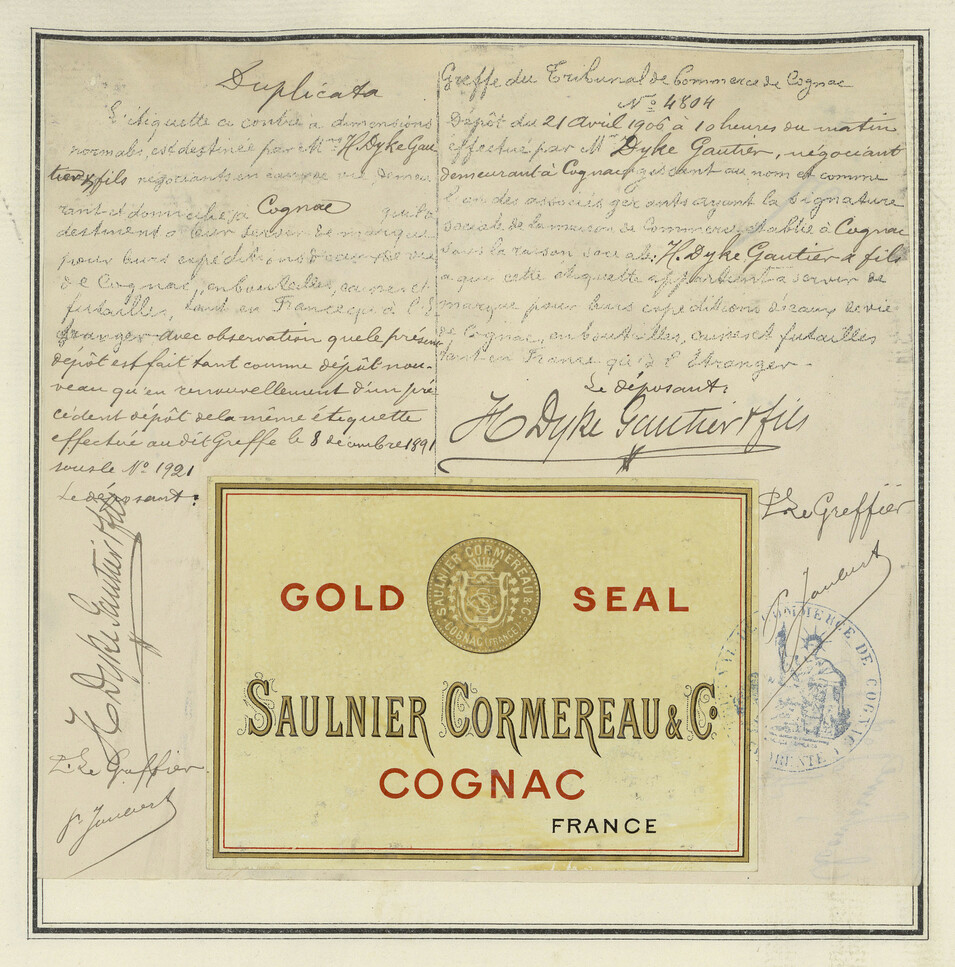 Duplicata
L'étiquette ci contre à dimensions
normales, est destinée par Mrs H. Dyke Gau
tier & fils négociants en eau de vie, demeu
rant et domiciliés à Cognac qui la
destinent à leur servir de marque
pour leurs expéditions d'eau de vie
de Cognac, en bouteilles, caisses et
futailles, tant en France qu'à l'É
tranger avec observation que le présent
dépôt est fait tant comme dépôt nou-
veau qu'en renouvellement d'un pré
cédent dépôt de la même étiquette
effectué au dit Greffe le 8 décembre 1891
sous le No 1921
Le déposant:
H Dyke Gautier & fils
Pr Le Greffier
P. Joubert
Greffe du Tribunal de Commerce de Cognac
No 4804
Dépôt du 21 Avril 1906 à 10 heures du matin
effectué par Mr Dyke Gautier, négociant
demeurant à Cognac, agissant au nom et comme
l'un des associés gérants ayant la signature
sociale de la maison de Commerce établie à Cognac
sous la raison sociale: H. Dyke. Gautier & fils
à que cette étiquette appartient à servir de
marque pour leurs expéditions d'eaux de vie
de Cognac, en bouteilles, caisses et futailles
tant en France qu'à l'Étranger-
Le déposant:
H Dyke Gautier & fils
Pr Le Greffier
P. Joubert
COMMERCE DE COGNAC
SAULNIER CORMEREAU & Co
COGNAC (FRANCE)
GOLD SEAL
SAULNIER CORMEREAU & Co.
COGNAC
FRANCE